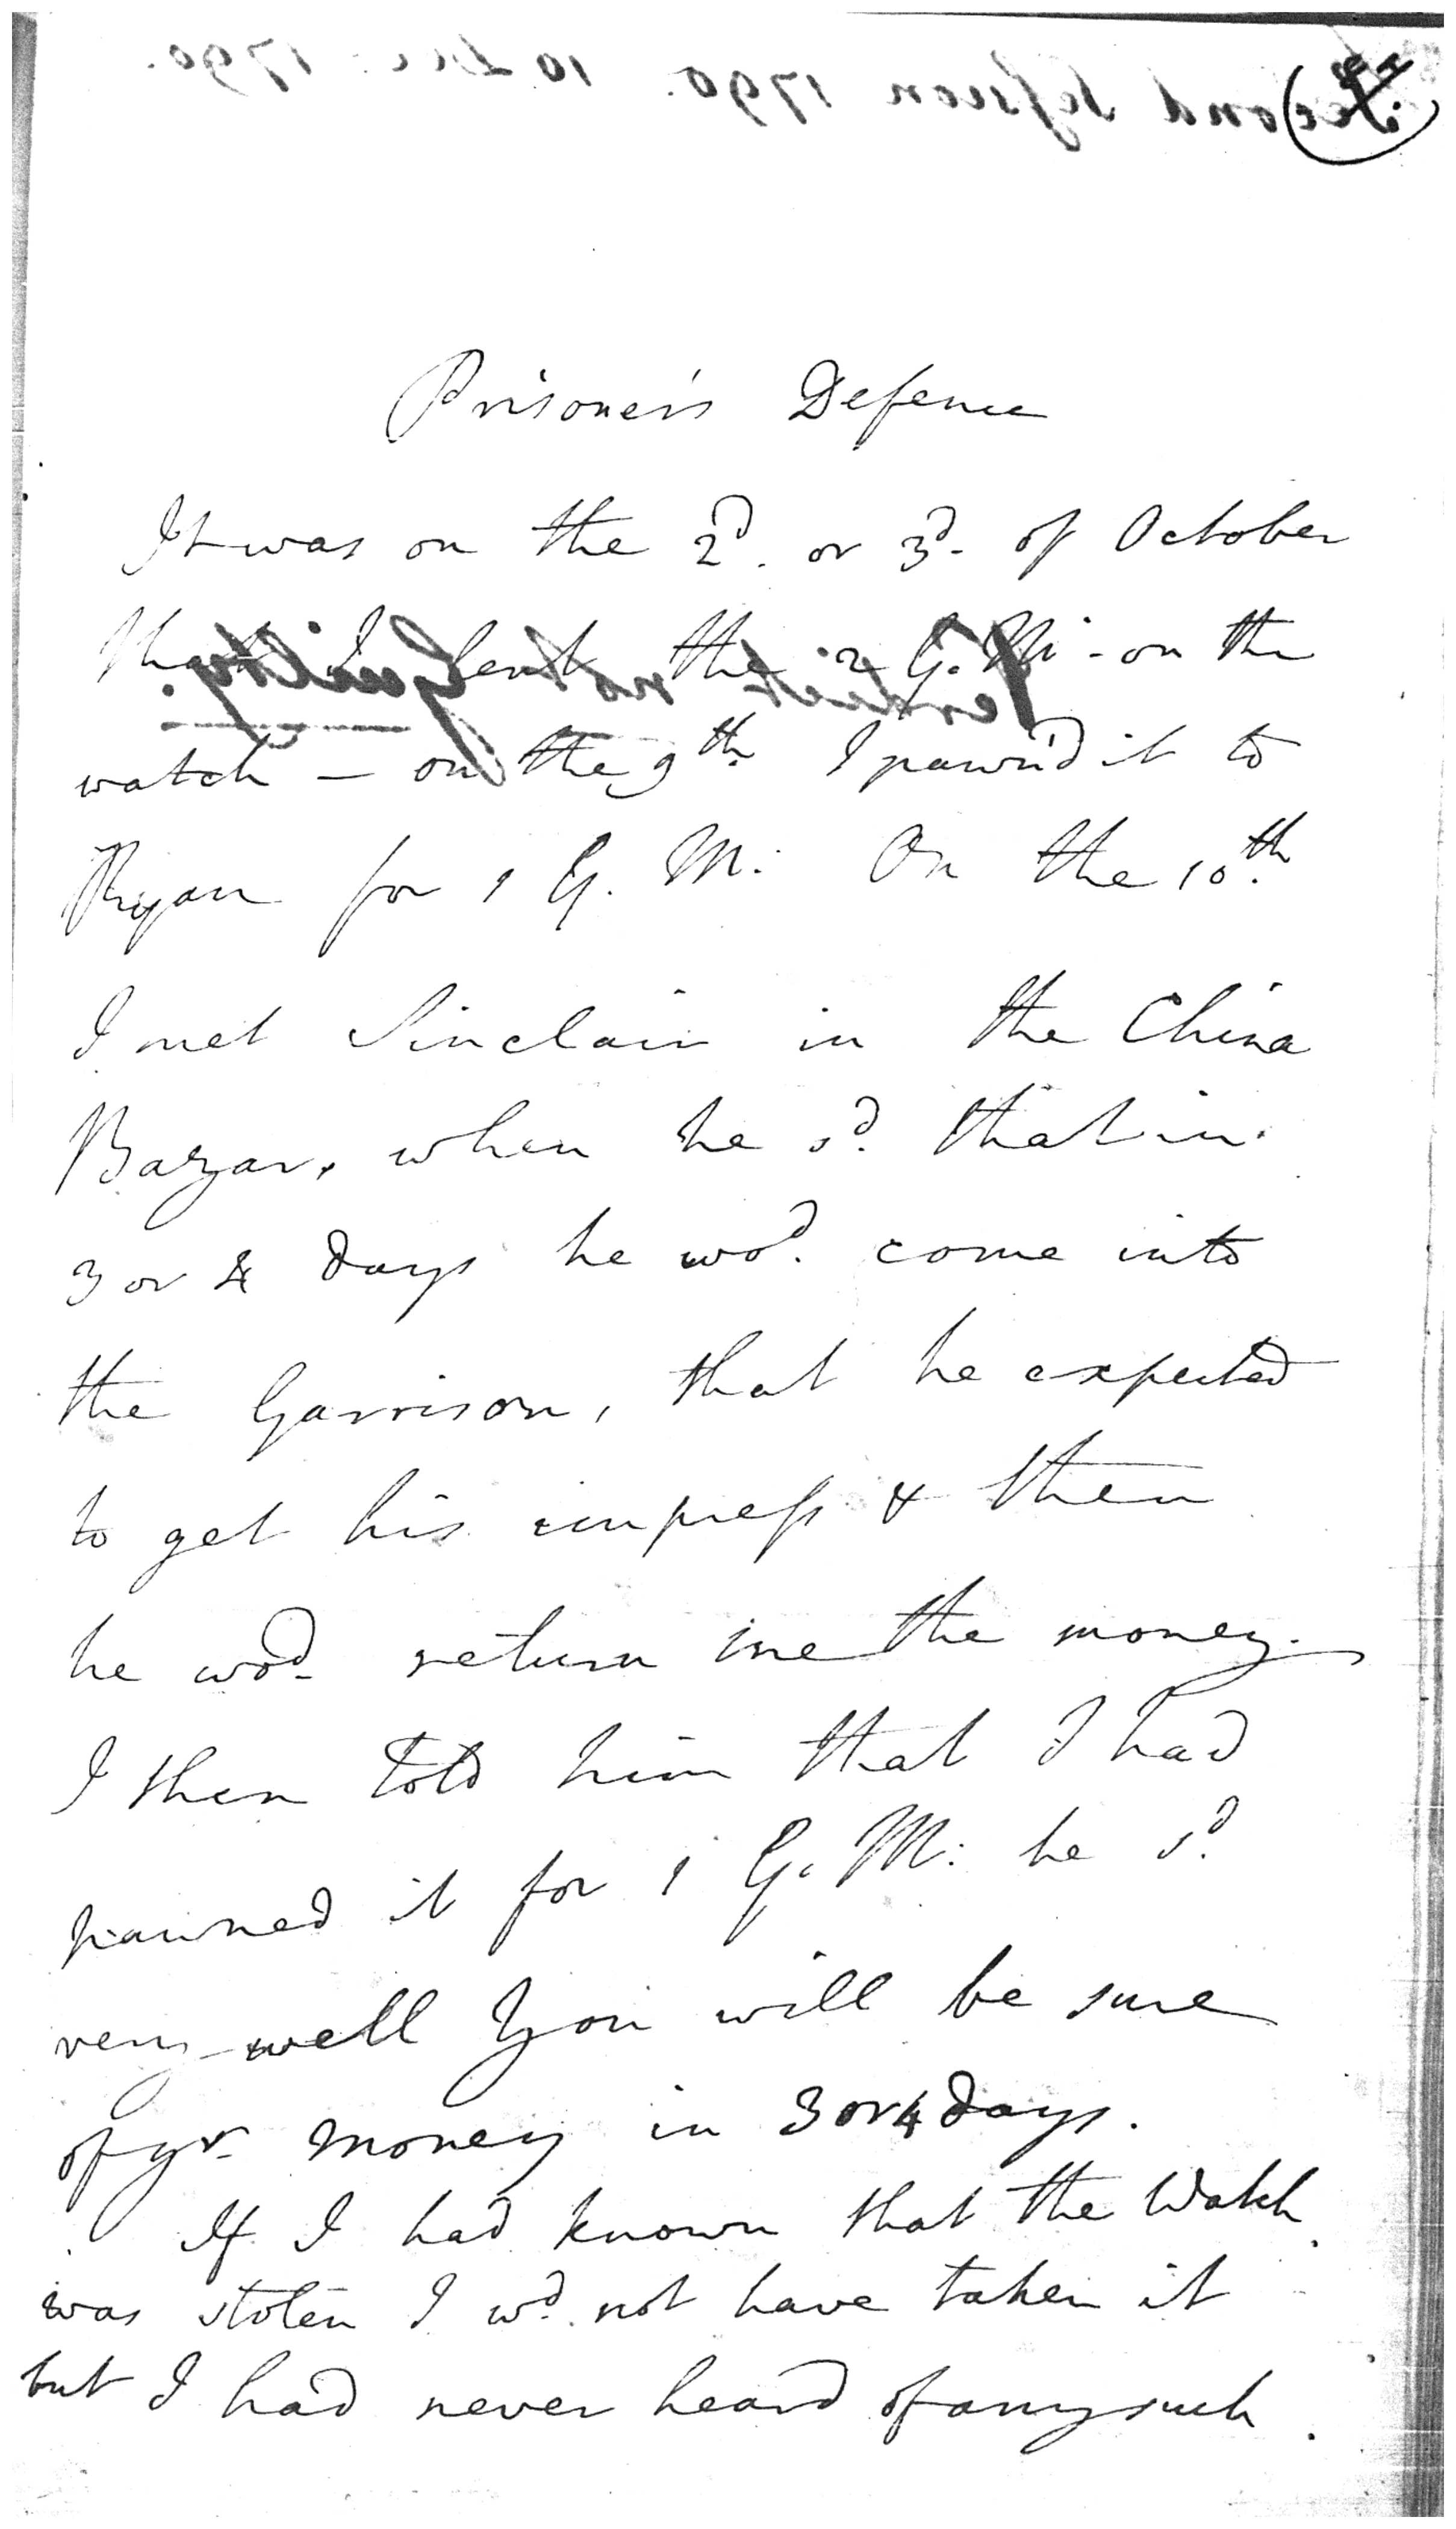 Second Session 1790. 10 Dec: 1790.
Prisoner's Defence
It was on the 2d. or 3d. of October
that I lent the 2 G. M: - on the
Verdict not Guilty.
watch — on the 9th. I pawn'd it to
Ryan for 1 G. M: On the 10th.
I met Sinclair in the China
Bazar, when he sd. that in
3 or 4 days he wod. come into
the Garrison, that he expected
to get his impress & then
he wod. return me the money.
I then told him that I had
pawned it for 1 G. M: he sd.
very well You will be sure
of yr. money in 3 or 4 days.
If I had known that the Watch
was stolen I wd. not have taken it
but I had never heard of any such